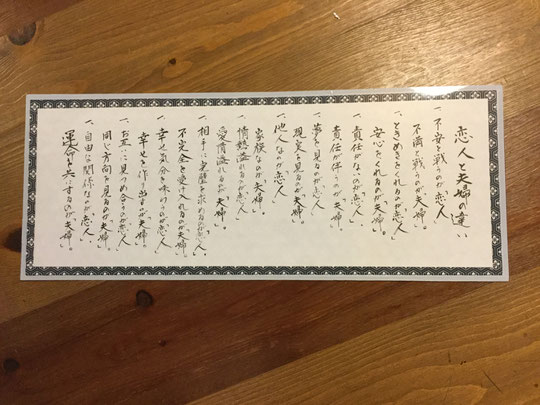 恋人と夫婦の違い
一、不安と戦うのが恋人、
不満と戦うのが夫婦。
一、ときめきをくれるのが恋人、
安心をくれるのが夫婦。
一、責任がないのが恋人、
責任が伴うのが夫婦。
一、夢を見るのが恋人、
現実を見るのが夫婦。
一、他人なのが恋人、
家族なのが夫婦。
一、情熱溢れるのが恋人、
愛情溢れるのが夫婦。
一、相手に完璧を求めるのが恋人、
不完全を受け入れるのが夫婦。
一、幸せ気分を味わうのが恋人、
幸せを作り出すのが夫婦。
一、お互いに見つめ合うのが恋人、
同じ方向を見るのが夫婦。
一、自由な関係なのが恋人、
運命を共にするのが夫婦。